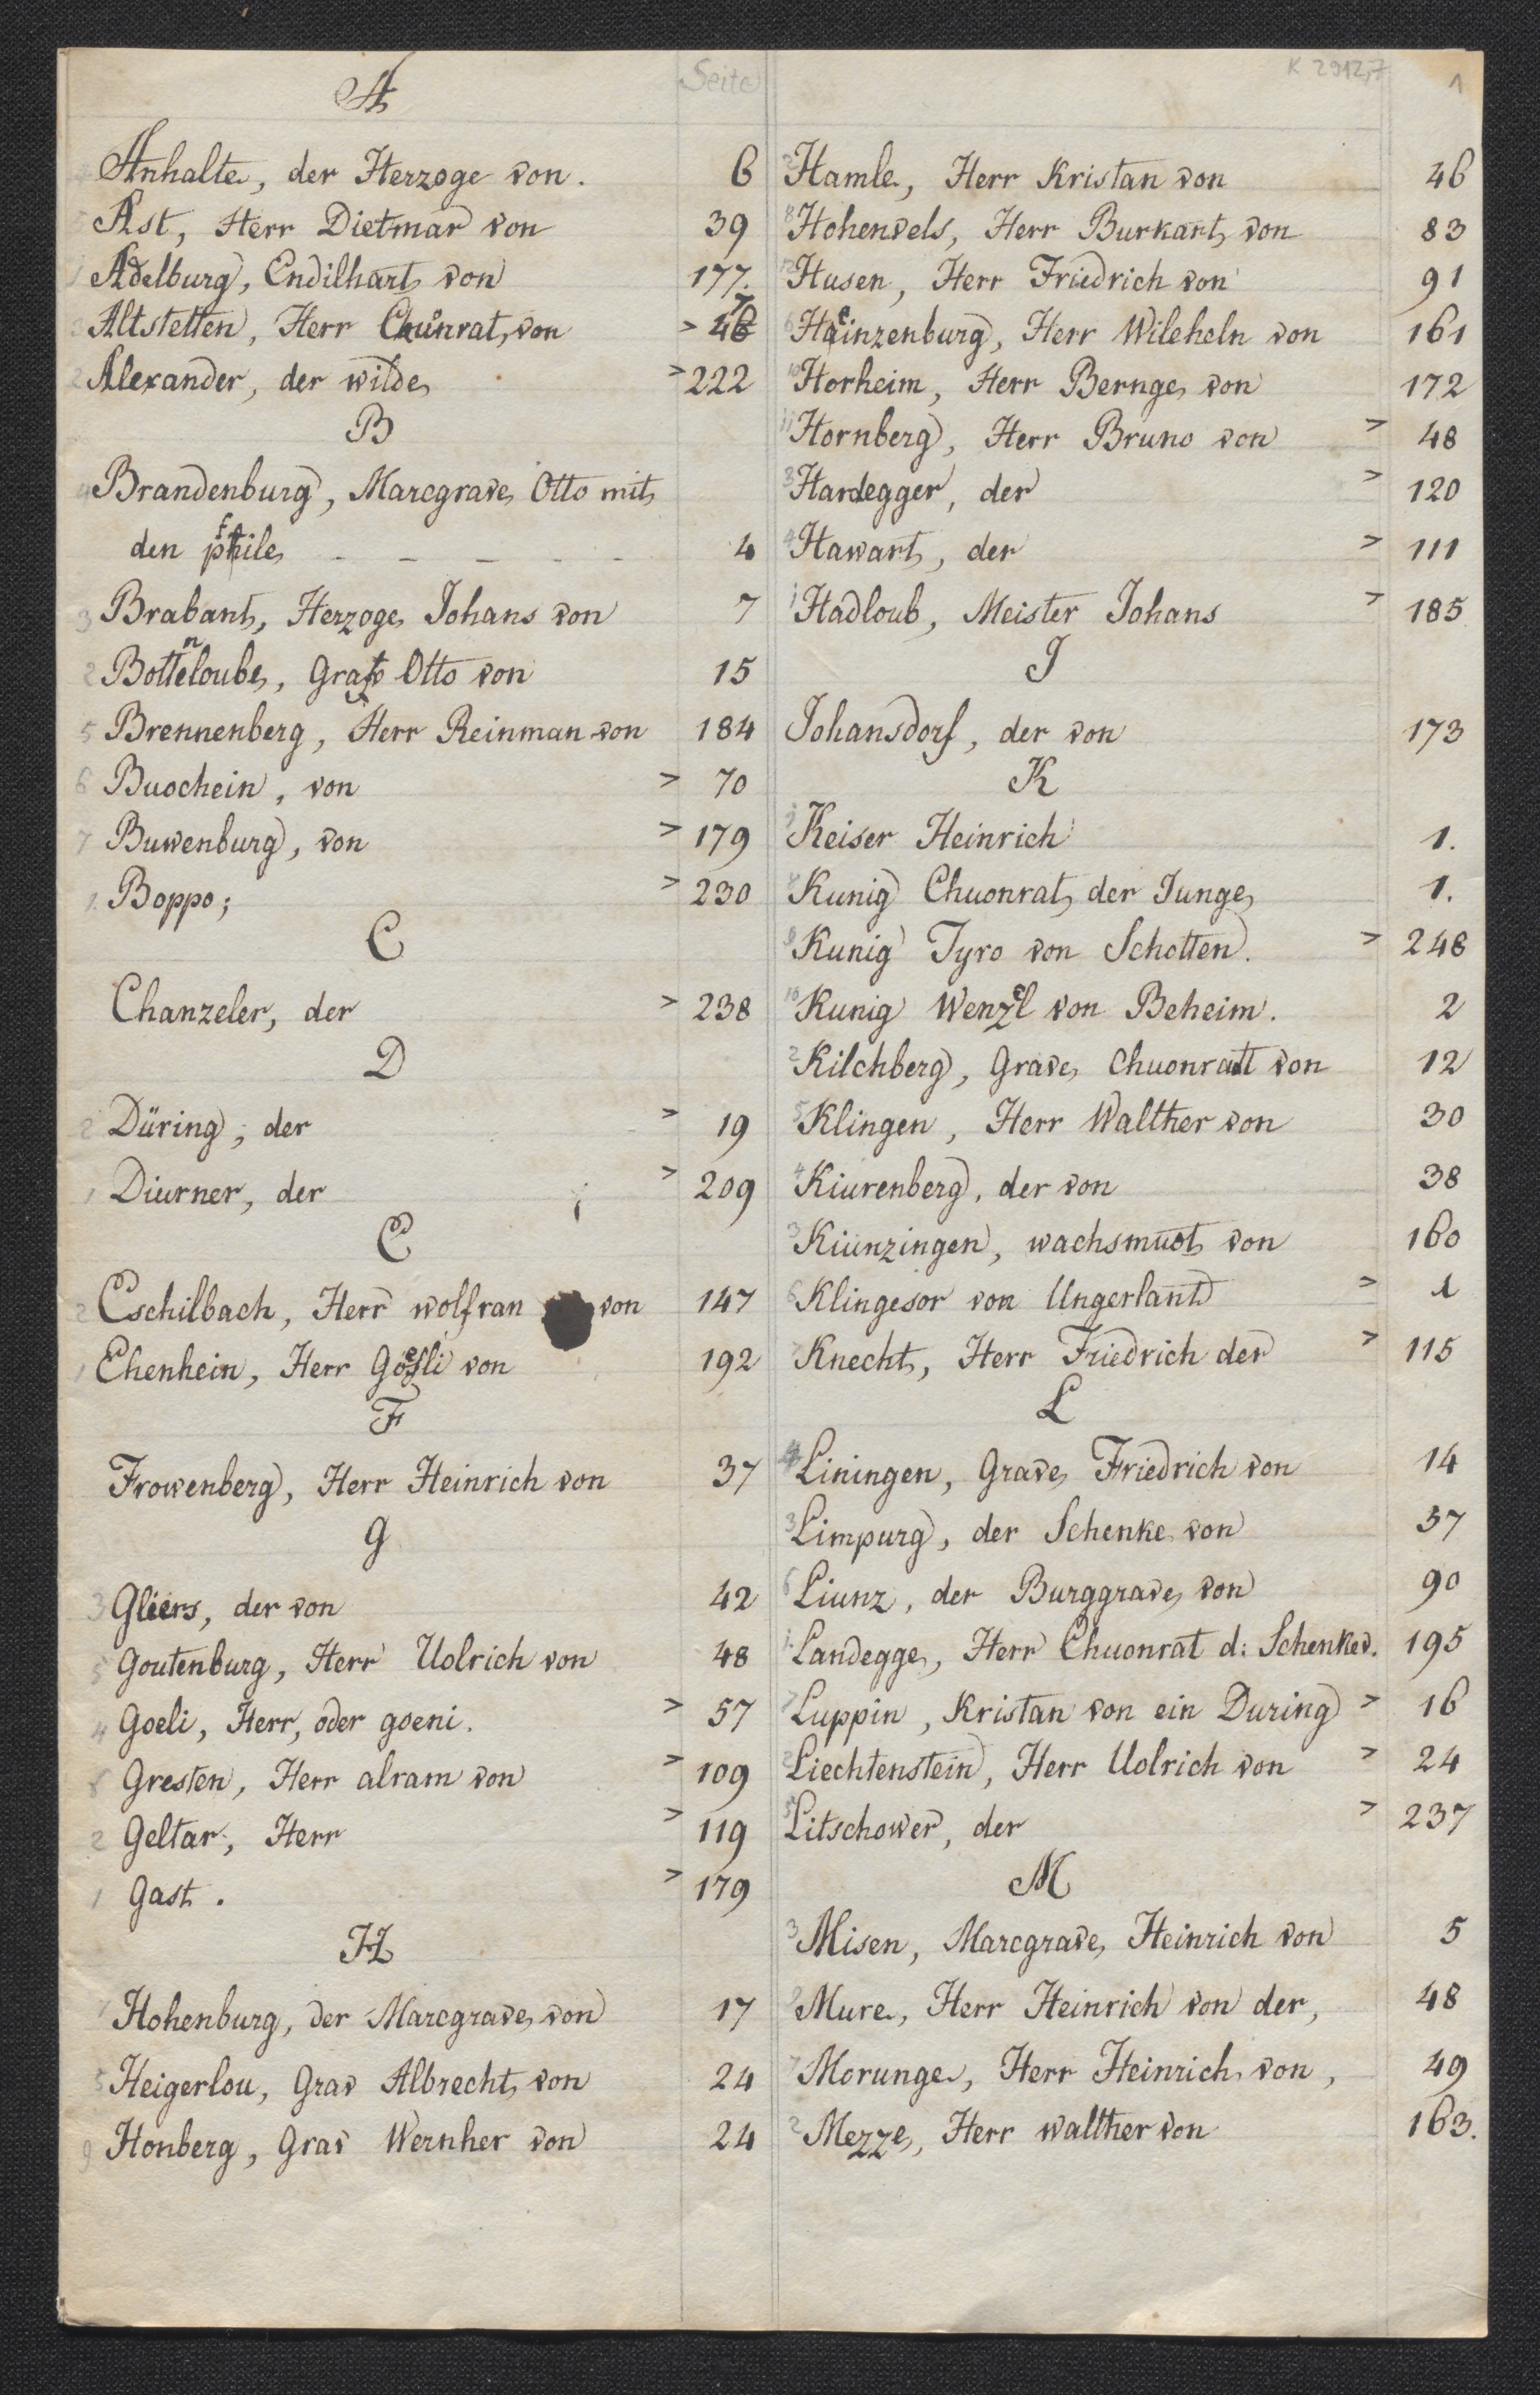 Seite
K 2912,7
1
A
4 Anhalte, der Herzoge von. 6
5 Ast, Herr Dietmar von 39
1 Adelburg, Endilhart von 177.
3 Altstetten, Herr Chuonrat, von > 47
2 Alexander, der wilde > 222
B
4 Brandenburg, Marcgrave Otto mit
den phile - - - - - - 4
3 Brabant, Herzoge Johans von 7
2 Bottenloube, Grav Otto von 15
5 Brennenberg, Herr Reinman von 184
6 Buochein, von > 70
7 Buwenburg, von > 179
1. Boppo; > 230
C
Chanzeler, der > 238
D
2 Düring, der > 19
1 Diurner, der > 209
E
2 Eschilbach, Herr wolfran von 147
1 Ehenhein, Herr Goesli von 192
F
Frowenberg, Herr Heinrich von 37
G
3 Gliers, der von 42
5 Goutenburg, Herr Uolrich von 48
4 Goeli, Herr, oder goeni. > 57
Gresten, Herr alram von > 109
2 Geltar, Herr > 119
1 Gast. > 179
H
7 Hohenburg, der Marcgrave von 17
5 Heigerlou, Grav Albrecht von 24
9 Honberg, Grav Wernher von 24
2 Hamle, Herr Kristan von 46
8 Hohenvels, Herr Burkart von 83
12 Husen, Herr Friedrich von 91
6 Heinzenburg, Herr Wileheln von 161
10 Horheim, Herr Bernge von 172
11 Hornberg, Herr Bruno von > 48
3 Hardegger, der > 120
4 Hawart, der > 111
1 Hadloub, Meister Johans > 185
J
Johansdorf, der von 173
K
1 Keiser Heinrich 1.
Kunig Chuonrat der Junge 1.
Kunig Tyro von Schotten. > 248
10 Kunig Wenzel von Beheim. 2
2 Kilchberg, Grave Chuonratt von 12
5 Klingen, Herr Walther von 30
4 Kiurenberg, der von 38
3 Kiunzingen, wachsmuot von 160
6 Klingesor von Ungerlant > 1
7 Knecht, Herr Friedrich der > 115
L
4 Liningen, Grave Friedrich von 14
3 Limpurg, der Schenke von 37
6 Liunz, der Burggrave von 90
1. Landegge, Herr Chuonrat d: Schenke v. 195
7 Luppin, Kristan von ein During > 16
2 Liechtenstein, Herr Uolrich von > 24
5 Litschower, der > 237
M
3 Misen, Marcgrave Heinrich von 5
Mure, Herr Heinrich von der, 48
7 Morunge, Herr Heinrich von, 49
2 Mezze, Herr walther von 163.